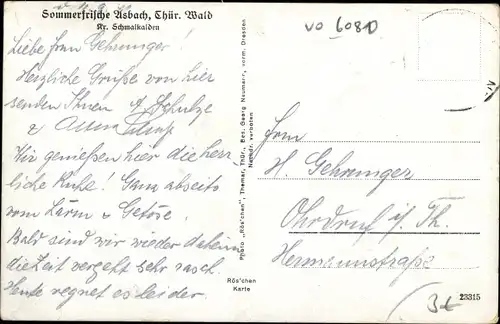 Sommerfrische Asbach, Thür. Wald
Kr. Schmalkalden
Liebe Frau Gehrunger!
Herzliche Grüße von hier
senden Ihnen A. Schulze
& Anna
Wir genießen hier die herr,
liche Ruhe. Ganz abseits
vom Lärm & Getöse.
Bald sind wir wieder daheim
die Zeit vergeht sehr rasch.
Heute regnet es leider.
Photo „Rös'chen", Themar, Thür., Bes. Georg Neumann, vorm. Dresden
Nachdr. verboten
Rös'chen
Karte
VO 6080
H. Gehrunger
Ohrdruf i/ Th.
Hermannstraße
23315
3€